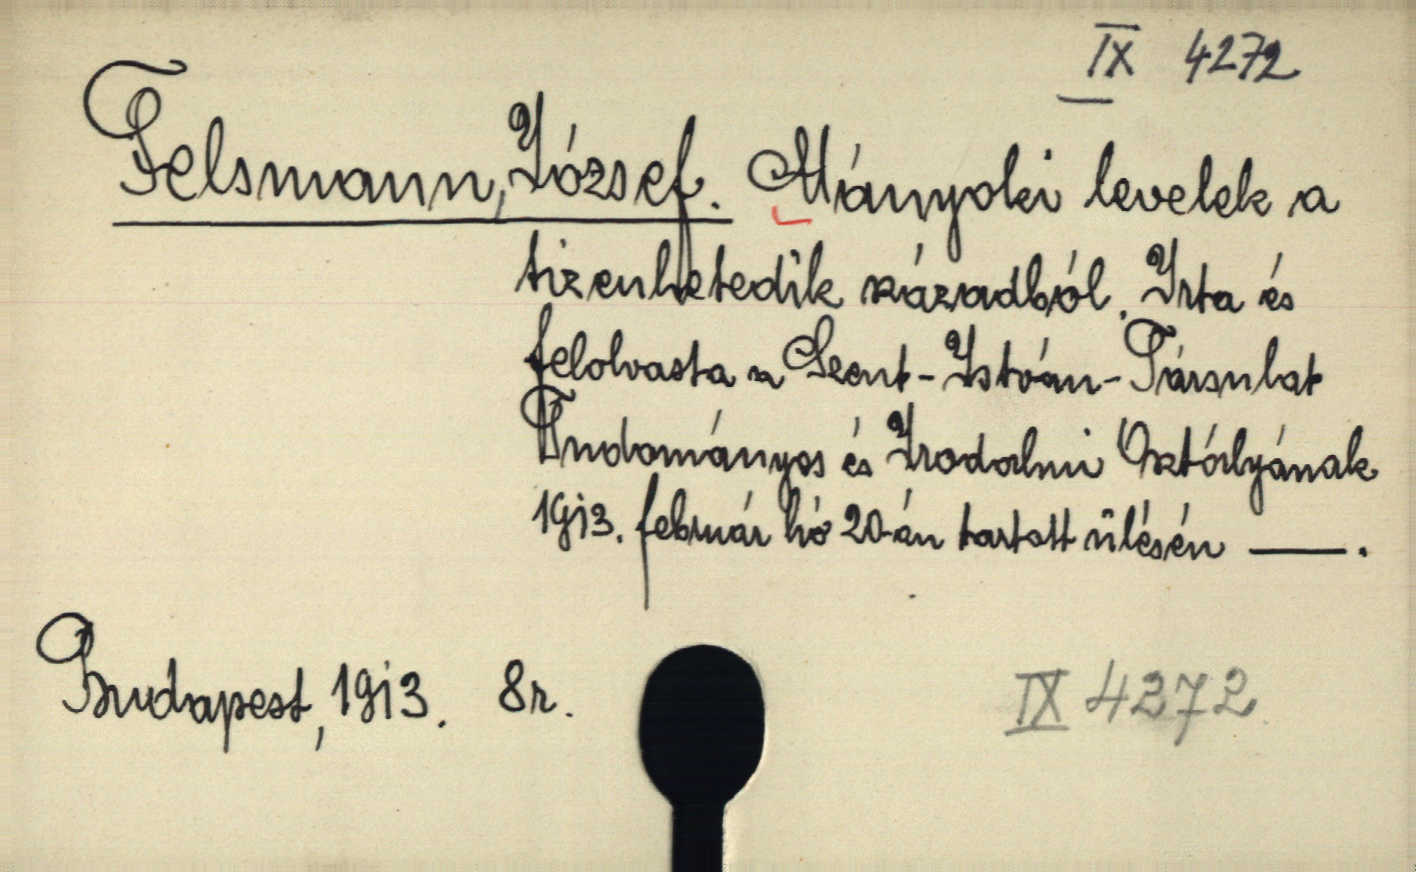 IX 4272
Felsmann, József. Mányoki levelek a
tizenhetedik századból. Irta és
felolvasta a Szent-István-Társulat
Tudományos és Irodalmi Osztályának
1913. február hó 20-án tartott ülésén —.
Budapest, 1913. 8r.
IX 4272